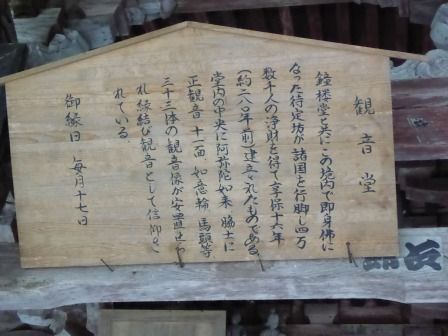 観音堂
鐘楼堂と共にこの境内で即身佛に
なった待定坊が諸国を行脚し四万
数千人の浄財を得て享保十六年
(約二八〇年前)建立されたものである
堂内の中央に阿弥陀如来 脇士に
正観音 十一面、如意輪 馬頭等
三十三体の観音像が安置せら
れ縁結び観音として信仰さ
れている、
御縁日 毎月十七日